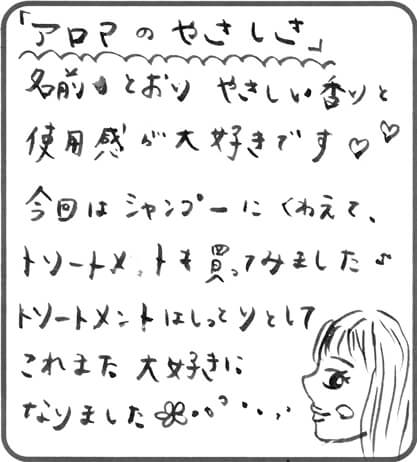 「アロマのやさしさ」
名前のとおり やさしい香りと
使用感が大好きです♡♡
今回はシャンプーにくわえて、
トリートメントも買ってみました♪
トリートメントはしっとりとして
これまた大好きに
なりました